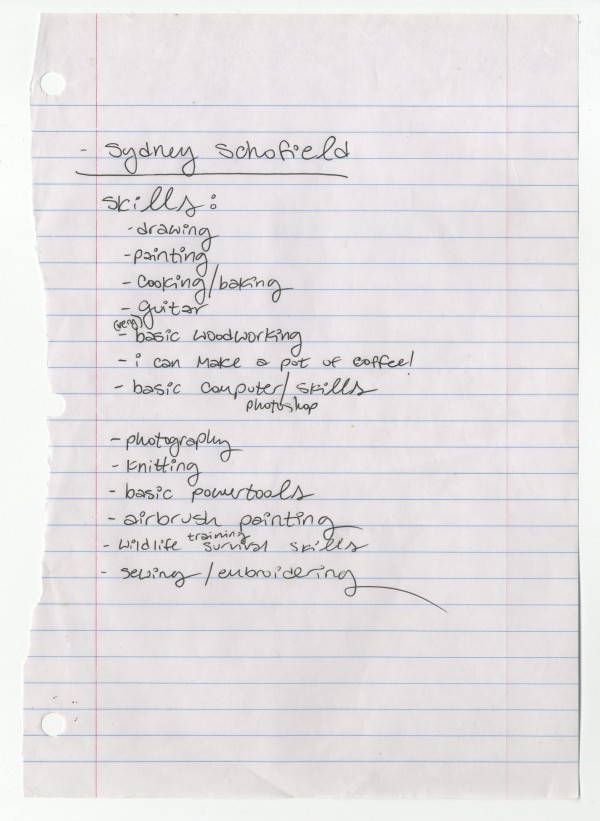 - Sydney Schofield
Skills:
- drawing
- painting
- cooking/baking
- guitar
(very)
- basic woodworking
- i can make a pot of coffee!
- basic computer/skills
photoshop
- photography
- knitting
- basic powertools
- airbrush painting
training
- wildlife survival skills
- sewing/embroidering